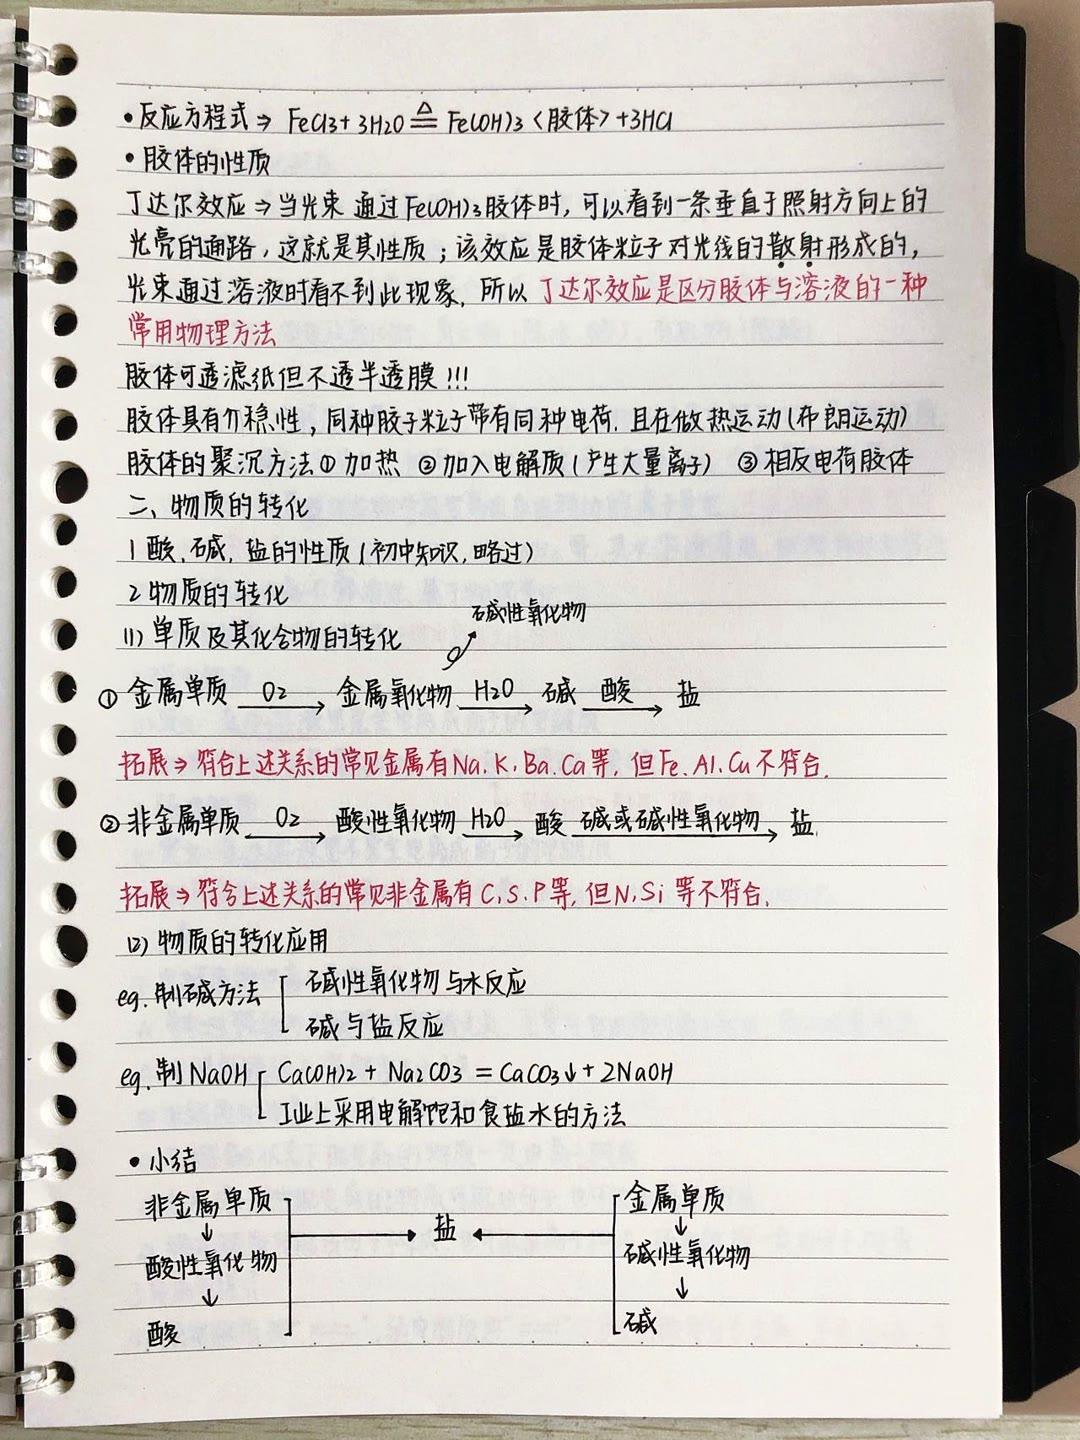 • 反应方程式 → FeCl3 + 3H2O ≜ Fe(OH)3 <胶体> + 3HCl
• 胶体的性质
丁达尔效应 → 当光束 通过Fe(OH)3胶体时, 可以看到一条垂直于照射方向上的
光亮的通路, 这就是其性质; 该效应是胶体粒子对光线的散射形成的,
光束通过溶液时看不到此现象. 所以 丁达尔效应是区分胶体与溶液的一种
常用物理方法
胶体可透滤纸但不透半透膜!!!
胶体具有介稳性, 同种胶子粒子带有同种电荷. 且在做热运动(布朗运动)
胶体的聚沉方法①加热 ②加入电解质(产生大量离子) ③相反电荷胶体
二、物质的转化
1 酸, 碱, 盐的性质(初中知识, 略过)
2 物质的转化
碱性氧化物
(1) 单质及其化合物的转化
① 金属单质 —O2→ 金属氧化物 —H2O→ 碱 —酸→ 盐
拓展 → 符合上述关系的常见金属有Na. K. Ba. Ca等, 但Fe. Al. Cu不符合.
② 非金属单质 —O2→ 酸性氧化物 —H2O→ 酸 —碱或碱性氧化物→ 盐.
拓展 → 符合上述关系的常见非金属有C. S. P等, 但N. Si 等不符合.
(2) 物质的转化应用
eg. 制碱方法 碱性氧化物与水反应
碱与盐反应
eg. 制NaOH Ca(OH)2 + Na2CO3 = CaCO3↓ + 2NaOH
工业上采用电解饱和食盐水的方法
• 小结
非金属单质 金属单质
↓ → 盐 ← ↓
酸性氧化物 碱性氧化物
↓ ↓
酸 碱